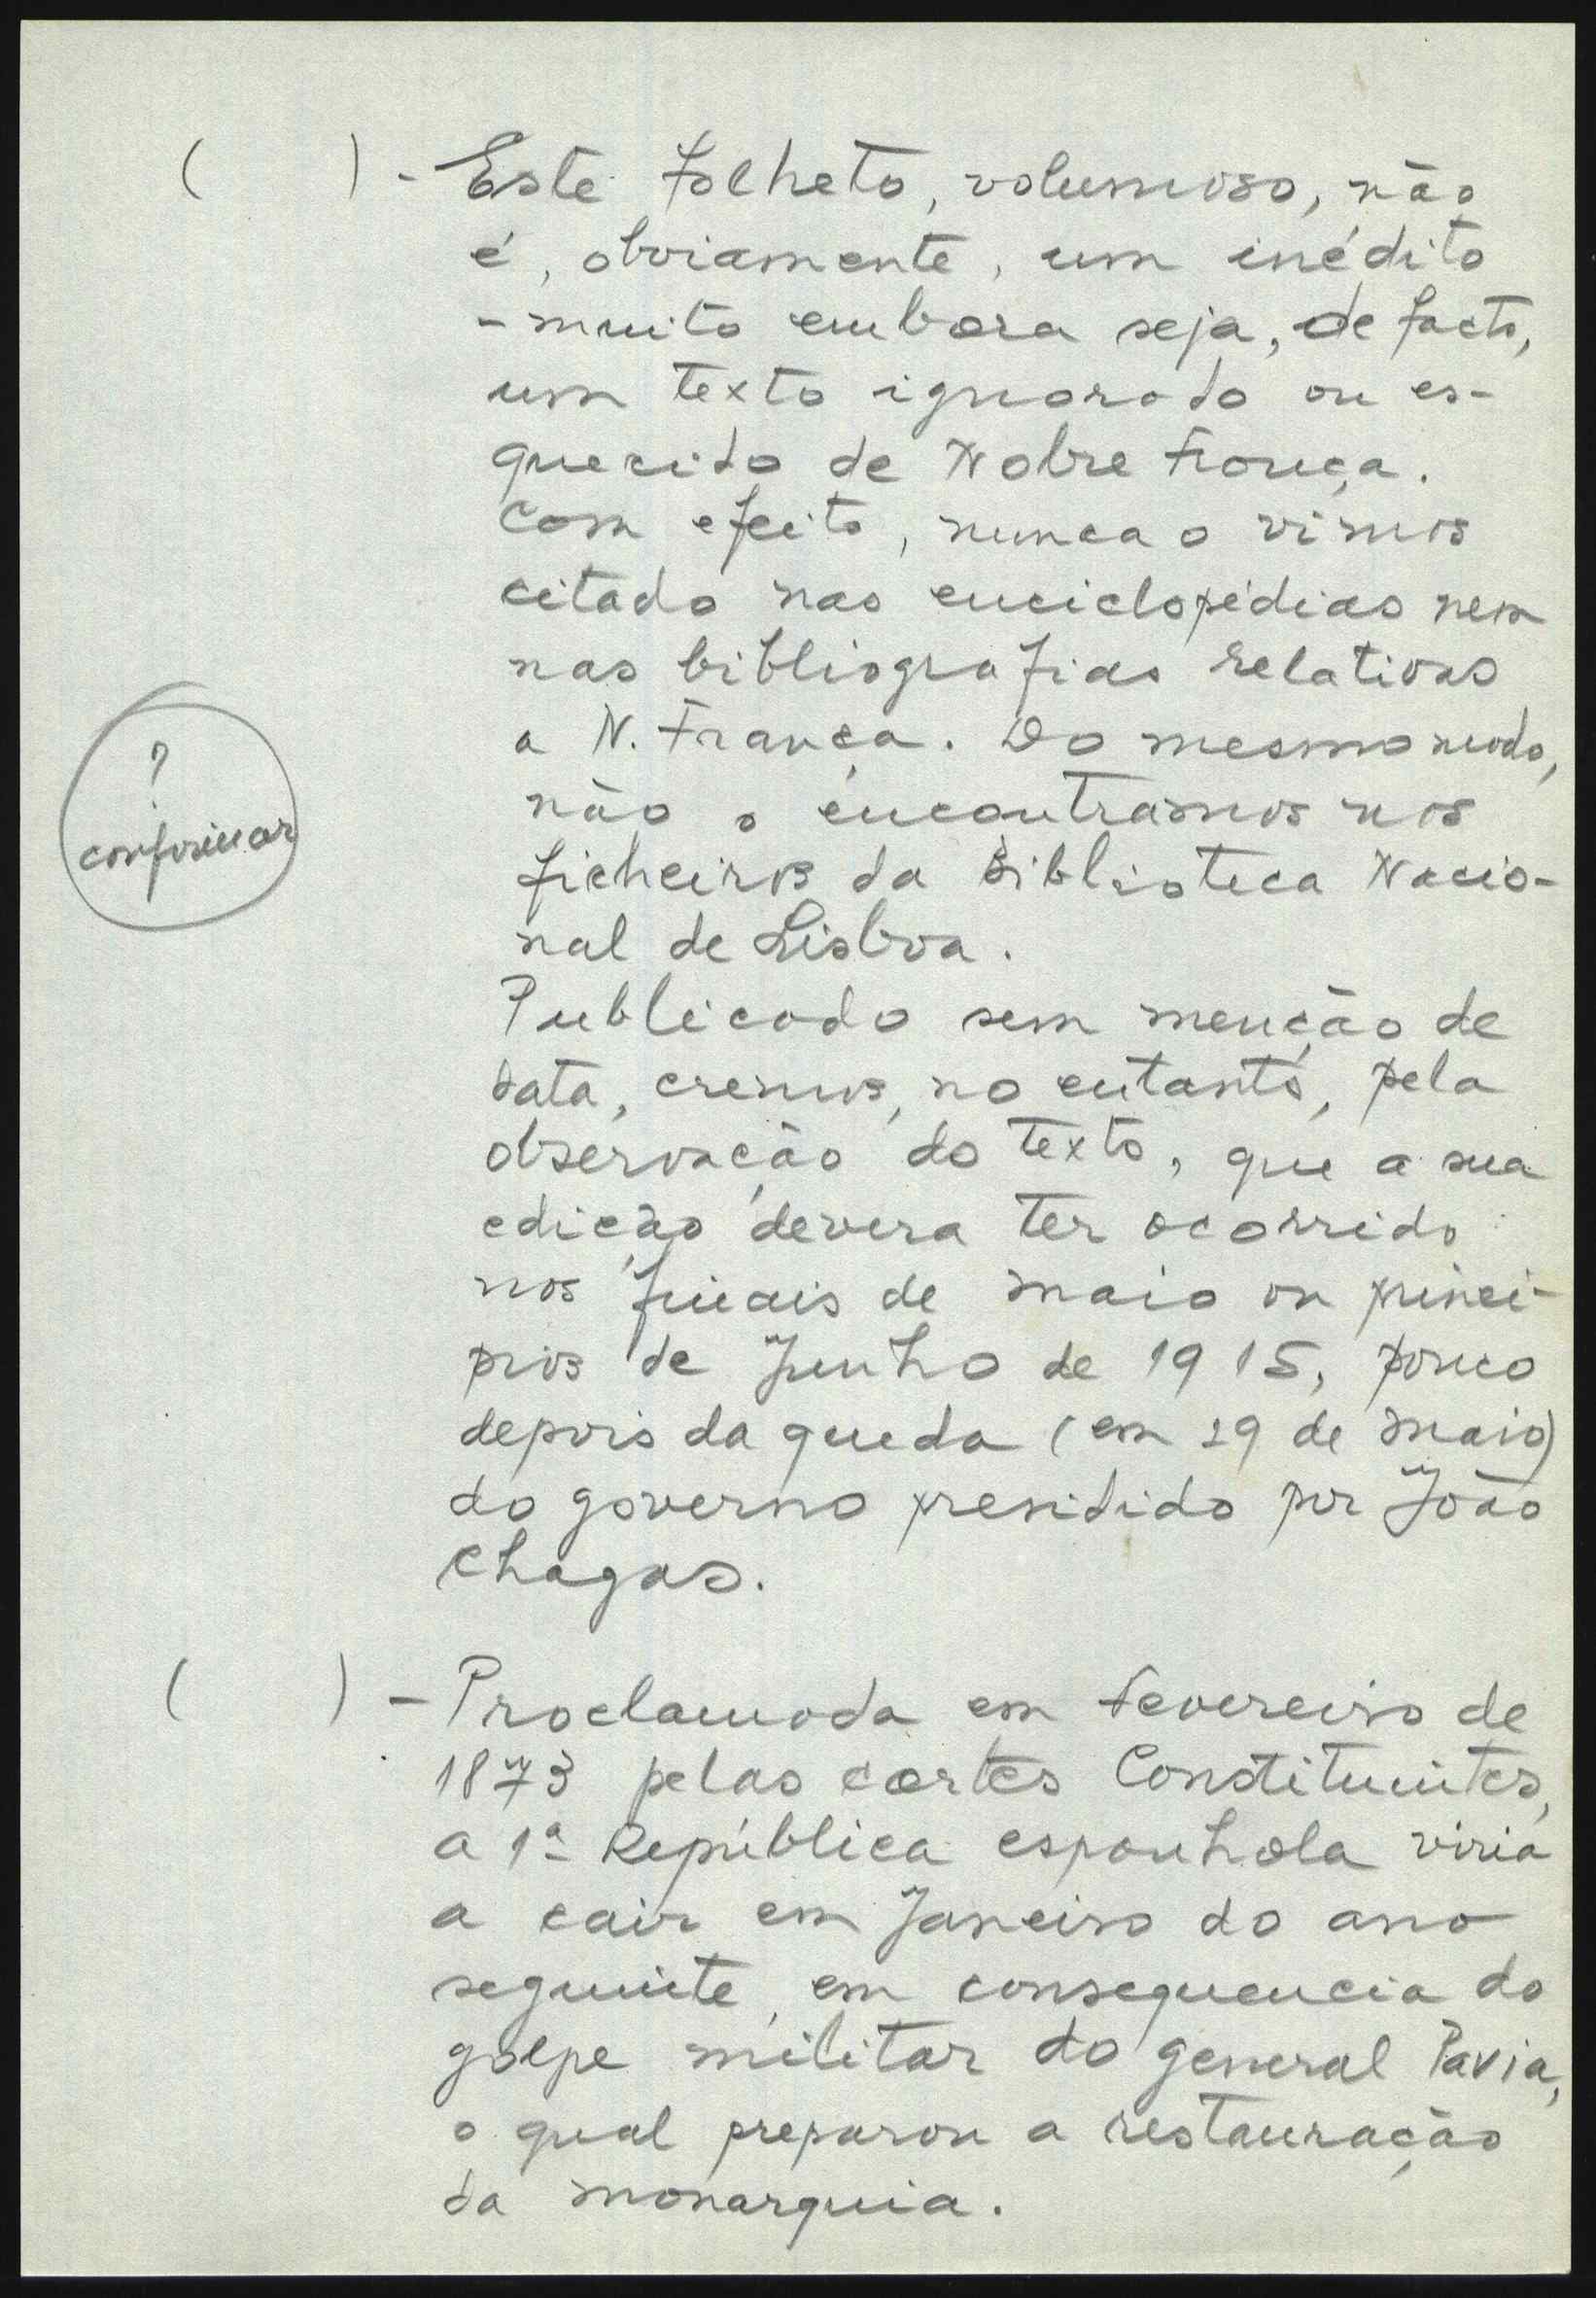 ( ) - Este folheto, volumoso, não
é, obviamente, um inédito
- muito embora seja, de facto,
um texto ignorado ou es-
quecido de Nobre França.
Com efeito, nunca o vimos
citado nas enciclopédias nem
nas bibliografias relativas
a N. França. Do mesmo modo,
não o encontramos nos
?
confirmar
ficheiros da Biblioteca Nacio-
nal de Lisboa.
Publicado sem menção de
data, cremos, no entanto, pela
observação do texto, que a sua
edição devera ter ocorrido
nos finais de Maio ou princi-
pios de Junho de 1915, pouco
depois da queda (em 29 de Maio)
do governo presidido por João
Chagas.
( ) - Proclamada em Fevereiro de
1873 pelas cortes Constituintes,
a 1ª República espanhola viria
a cair em Janeiro do ano
seguinte, em consequencia do
golpe militar do general Pavia,
o qual preparou a restauração
da monarquia.